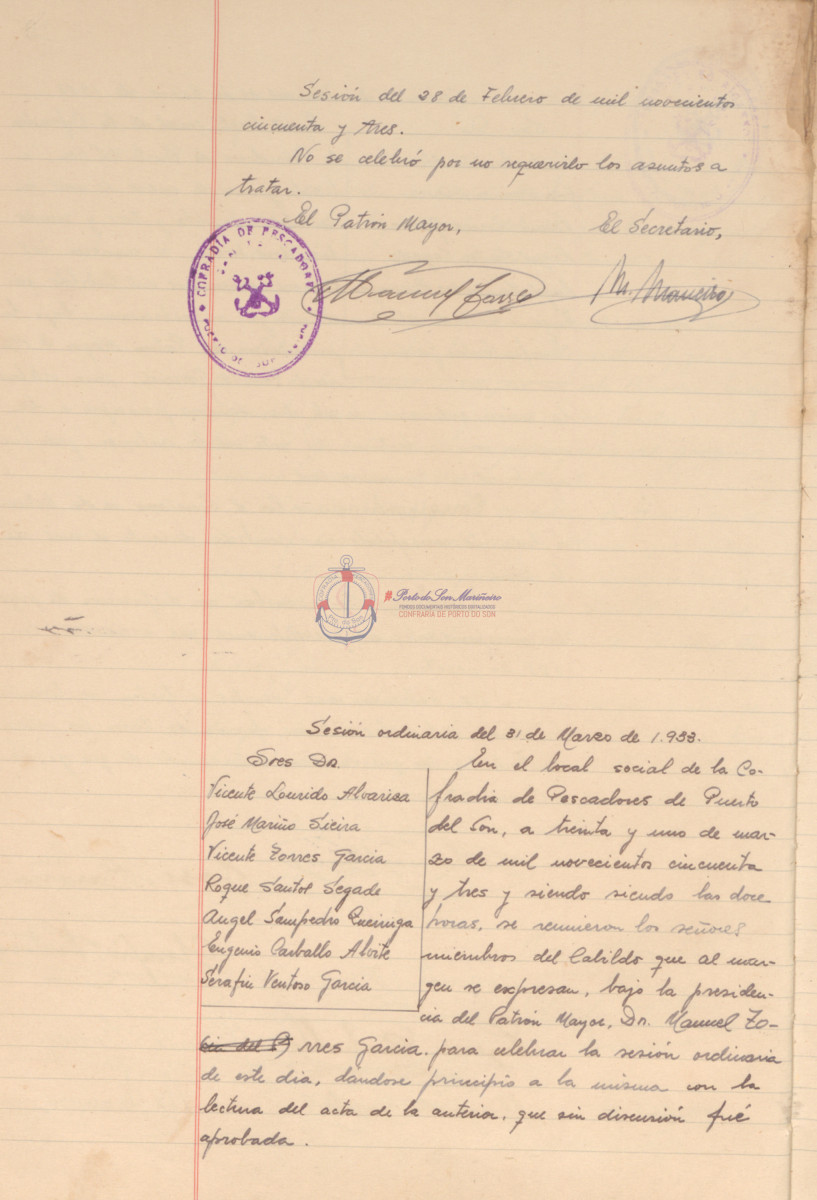 Sesión del 28 de Febrero de mil novecientos
cincuenta y tres.
No se celebró por no requerirlo los asuntos a
tratar.
El Patrón Mayor,
El Secretario,
COFRADIA DE PESCADORES
PUERTO DEL SON
Manuel Torres
M. Maneiro
#PortodoSon Mariñeiro
FONDOS DOCUMENTAIS HISTÓRICOS DIXITALIZADOS
CONFRARÍA DE PORTO DO SON
Sesión ordinaria del 31 de Marzo de 1.953.
Sres Dn.
Vicente Lourido Alvariza
José Mariño Sieira
Vicente Torres Garcia
Roque Santos Segade
Angel Sampedro Queiruga
Eugenio Carballo Alvite
Serafin Ventoso Garcia
En el local social de la Co-
fradia de Pescadores de Puerto
del Son, a treinta y uno de mar-
zo de mil novecientos cincuenta
y tres y siendo siendo las doce
horas, se reunieron los señores
miembros del Cabildo que al mar-
gen se expresan, bajo la presiden-
cia del Patrón Mayor, Dn. Manuel To-
rres Garcia. para celebrar la sesión ordinaria
de este dia, dándose principio a la misma con la
lectura del acta de la anterior, que sin discusión fué
aprobada.